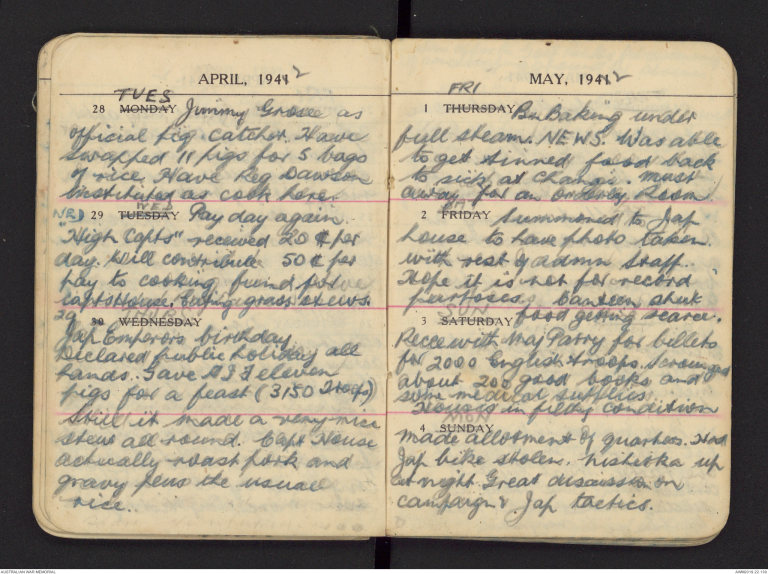 APRIL, 1942
TUES
28 MONDAY Jimmy Grosse as
official pig catcher. Have
swapped 11 pigs for 5 bags
of rice. Have Reg Dawson
instituted as cook here.
WED
29 TUESDAY Pay day again.
"High Capts" received 20 ¢ per
day. Will contribute 50 ¢ per
pay to cooking fund for
Capts House. Eating grass stews.
29
THURS
30 WEDNESDAY
Jap Emperors birthday
Declared public holiday all
hands. Gave AIF eleven
pigs for a feast (3150 troops)
Still it made a very nice
stew all round. Capt House
actually roast pork and
gravy plus the usual
rice.
MAY, 1942
FRI
1 THURSDAY Bn Baking under
full steam. NEWS. Was able
to get tinned food back
to sick at Changi. Must
away for an Orderly Room
SAT
2 FRIDAY Summoned to Jap
house to have photo taken
with rest of admn staff.
Hope it is not for record
purposes. Canteen shut
food getting scarce.
SUN
3 SATURDAY
Recce with Maj Parry for billets
for 2000 English troops. Scrounged
about 200 good books and
some medical supplies.
Houses in filthy condition
MON
4 SUNDAY
Made allotment of quarters. Had
Jap bike stolen. Nishioka up
at night. Great discussion on
campaign & Jap tactics.
AUSTRALIAN WAR MEMORIAL